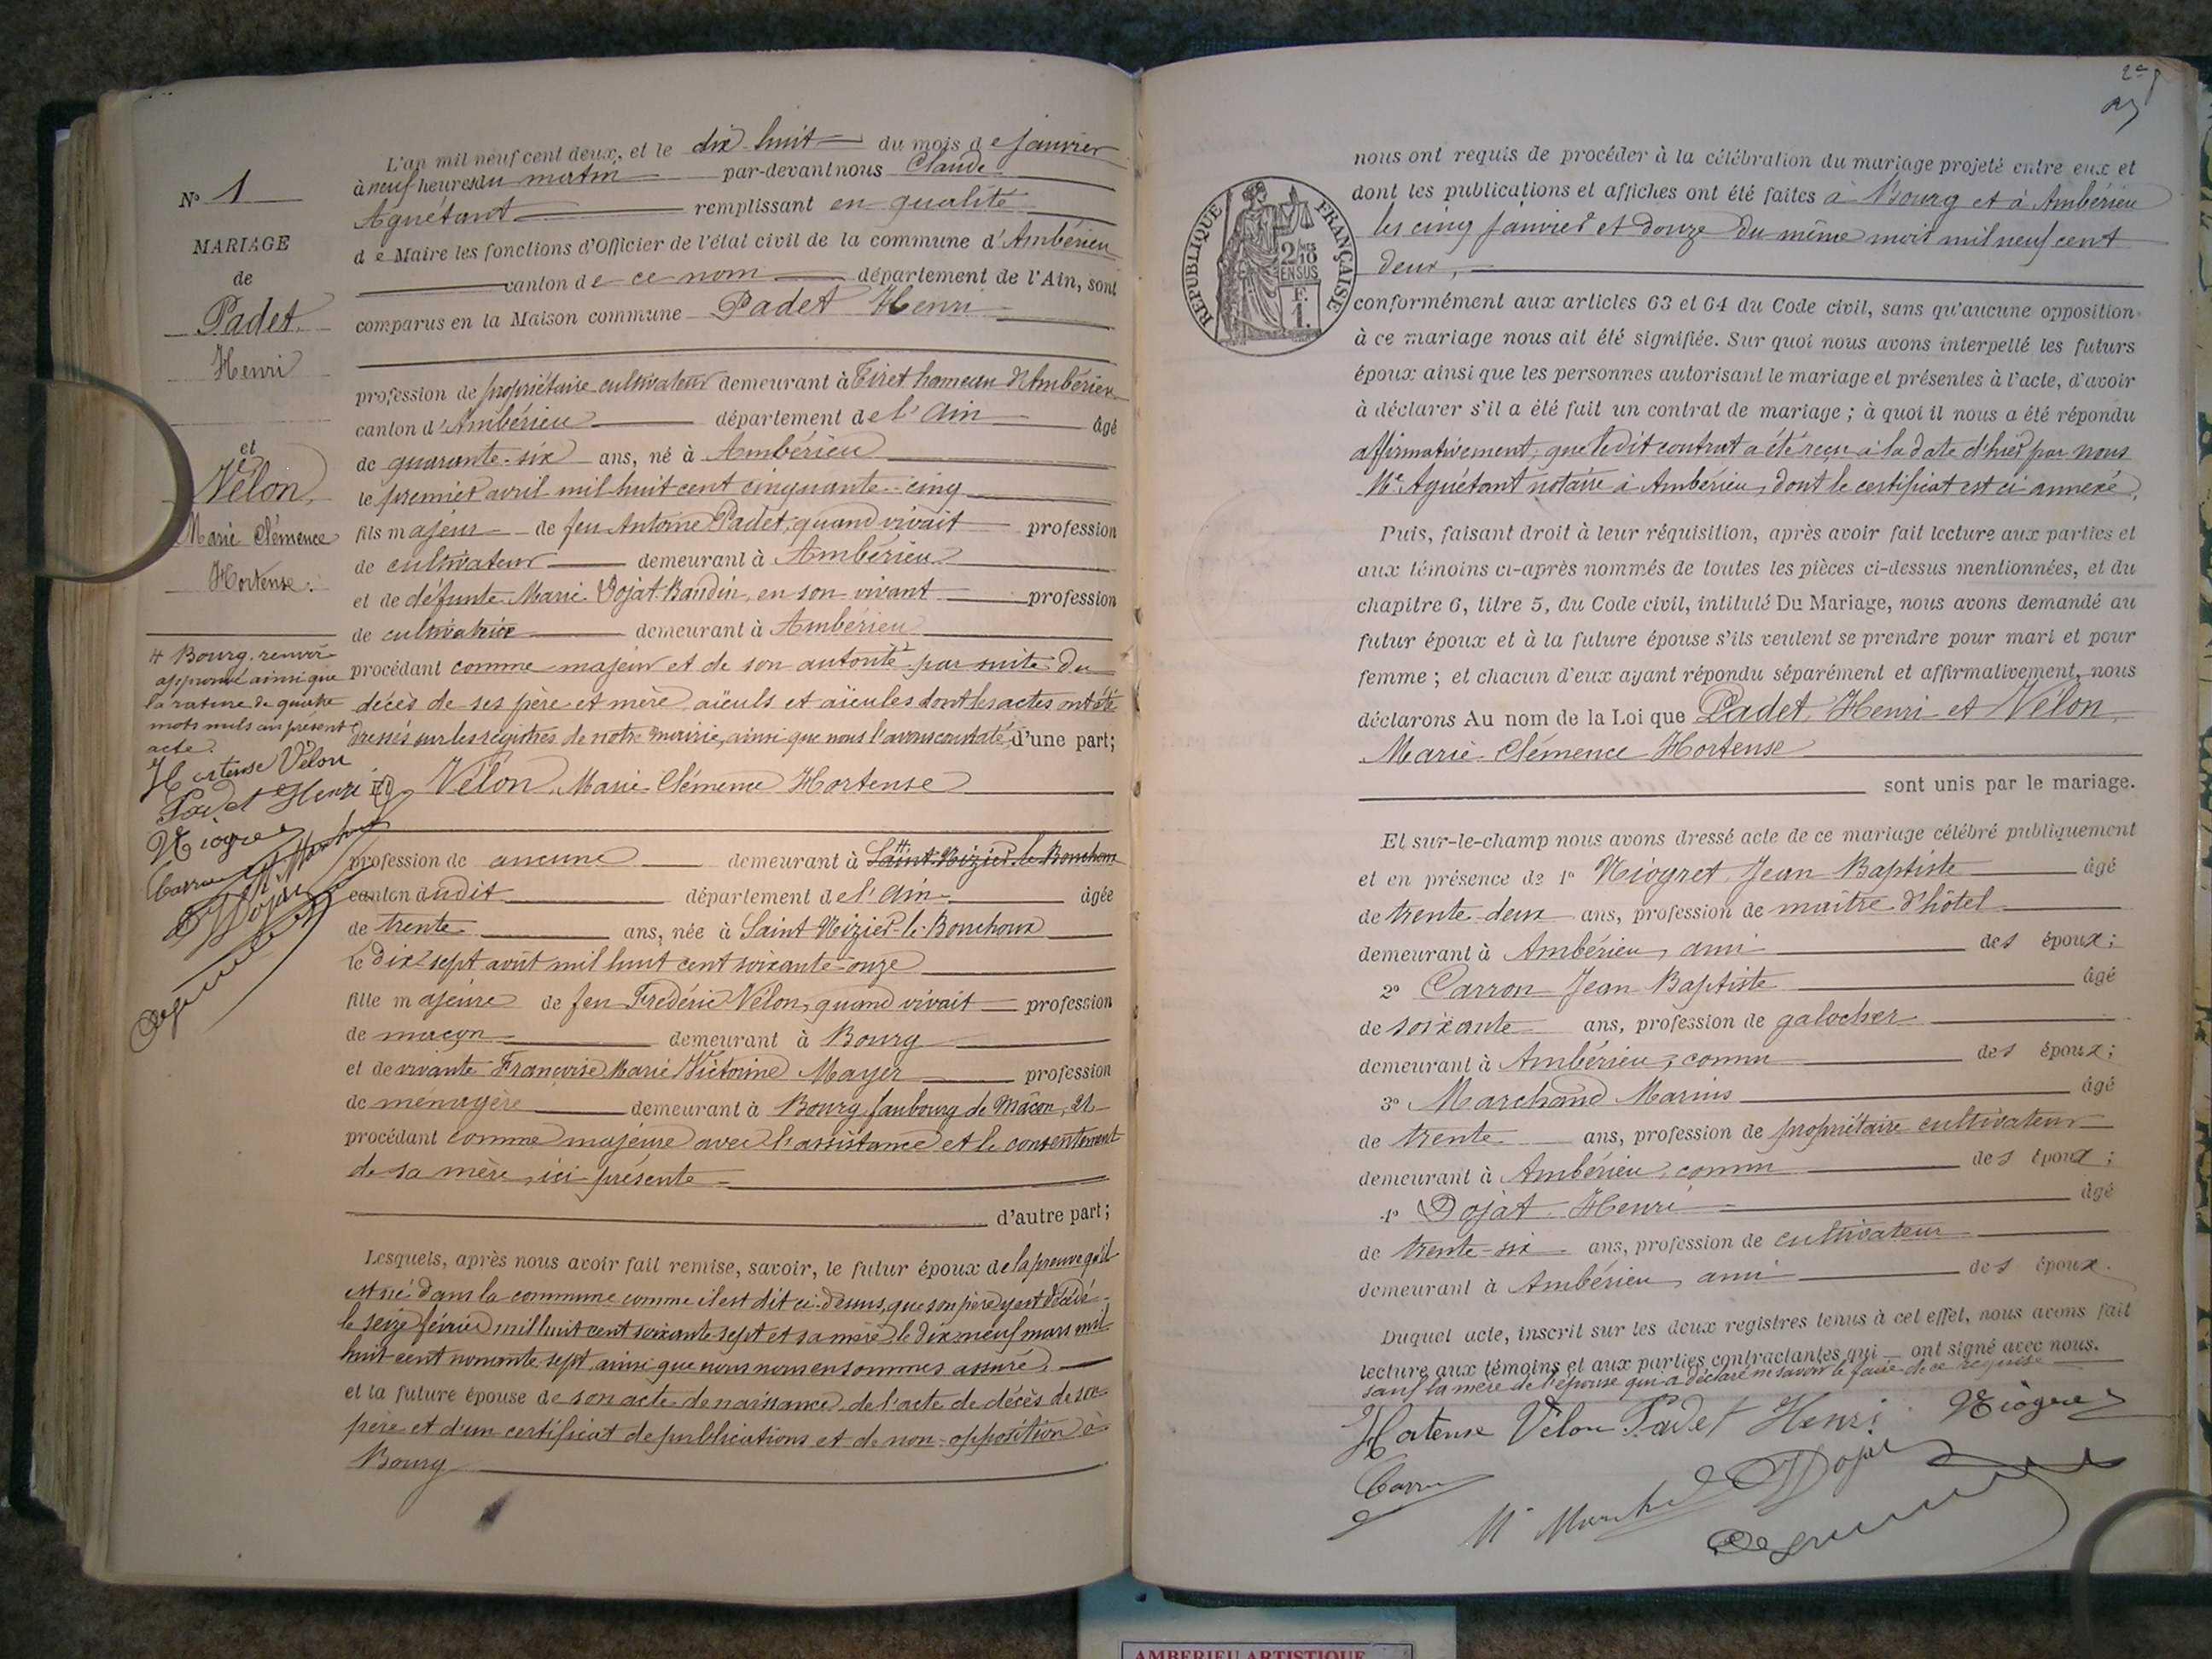 L'an mil neuf cent deux, et le dix huit du mois de janvier
à neuf heures du matin par-devant nous Claude
Aguétant remplissant en qualité
de Maire les fonctions d'Officier de l'état civil de la commune d'Ambérieu
canton de ce nom département de l'Ain, sont
comparus en la Maison commune Padet Henri
profession de propriétaire cultivateur demeurant à Tiret hameau d'Ambérieu
canton d'Ambérieu département de l'Ain âgé
de quarante-six ans, né à Ambérieu
le premier avril mil huit cent cinquante-cinq
fils majeur de feu Antoine Padet, quand vivait profession
de cultivateur demeurant à Ambérieu
et de défunte Marie Dojat-Baudin, en son vivant profession
de cultivatrice demeurant à Ambérieu
procédant comme majeur et de son autorité par suite du
décès de ses père et mère aïeuls et aïeules dont les actes ont été
dressés sur les registres de notre mairie, ainsi que nous l'avons constaté, d'une part;
ET Vélon, Marie Clémence Hortense
profession de aucune demeurant à Saint-Nizier-le-Bouchoux
canton dudit département de l'Ain âgée
de trente ans, née à Saint Nizier-le-Bouchoux
le dix-sept août mil huit cent soixante-onze
fille majeure de feu Frédéric Vélon, quand vivait profession
de maçon demeurant à Bourg
et de vivante Françoise Marie Victorine Mayer profession
de ménagère demeurant à Bourg faubourg de Mâcon, 21
procédant comme majeure avec l'assistance et le consentement
de sa mère, ici présente
d'autre part;
Lesquels, après nous avoir fait remise, savoir, le futur époux de la preuve qu'il
est né dans la commune comme il est dit ci-dessus, que son père y est décédé
le seize février mil huit cent soixante-sept et sa mère le dix neuf mars mil
huit cent nonante sept, ainsi que nous nous en sommes assuré.
et la future épouse de son acte de naissance, de l'acte de décès de son
père et d'un certificat de publications et de non-opposition à
Bourg
N° 1
MARIAGE
de
Padet
Henri
et
Vélon,
Marie Clémence
Hortense.
# Bourg. renvoi
approuvé ainsi que
la rature de quatre
mots nuls au présent
acte.
Hortense Vélon
Padet Henri
Niogret
Carron M. Marchand
Dojat
2e
nous ont requis de procéder à la célébration du mariage projeté entre eux et
dont les publications et affiches ont été faites à Bourg et à Ambérieu
les cinq janvier et douze du même mois mil neuf cent
deux,
RÉPUBLIQUE FRANÇAISE
2/10 EN SUS
F. 1.
conformément aux articles 63 et 64 du Code civil, sans qu'aucune opposition
à ce mariage nous ait été signifiée. Sur quoi nous avons interpellé les futurs
époux ainsi que les personnes autorisant le mariage et présentes à l'acte, d'avoir
à déclarer s'il a été fait un contrat de mariage ; à quoi il nous a été répondu
affirmativement, que ledit contrat a été reçu à la date d'hier par nous
Me Aguétant notaire à Ambérieu, dont le certificat est ci annexé.
Puis, faisant droit à leur réquisition, après avoir fait lecture aux parties et
aux témoins ci-après nommés de toutes les pièces ci-dessus mentionnées, et du
chapitre 6, titre 5, du Code civil, intitulé Du Mariage, nous avons demandé au
futur époux et à la future épouse s'ils veulent se prendre pour mari et pour
femme ; et chacun d'eux ayant répondu séparément et affirmativement, nous
déclarons Au nom de la Loi que Padet, Henri et Vélon
Marie Clémence Hortense
sont unis par le mariage.
Et sur-le-champ nous avons dressé acte de ce mariage célébré publiquement
et en présence de 1° Niogret, Jean Baptiste âgé
de trente-deux ans, profession de maître d'hôtel
demeurant à Ambérieu, ami des époux;
2° Carron Jean Baptiste âgé
de soixante ans, profession de galocher
demeurant à Ambérieu, connu des époux;
3° Marchand Marius âgé
de trente ans, profession de propriétaire cultivateur
demeurant à Ambérieu, connu des époux;
4° Dojat Henri âgé
de trente-six ans, profession de cultivateur
demeurant à Ambérieu, ami des époux.
Duquel acte, inscrit sur les deux registres tenus à cet effet, nous avons fait
lecture aux témoins et aux parties contractantes qui ont signé avec nous.
sauf la mère de l'épouse qui a déclaré ne savoir le faire de ce requise
Hortense Vélon Padet Henri Niogret
Carron
M. Marchand Dojat
AMBERIEU ARTISTIQUE